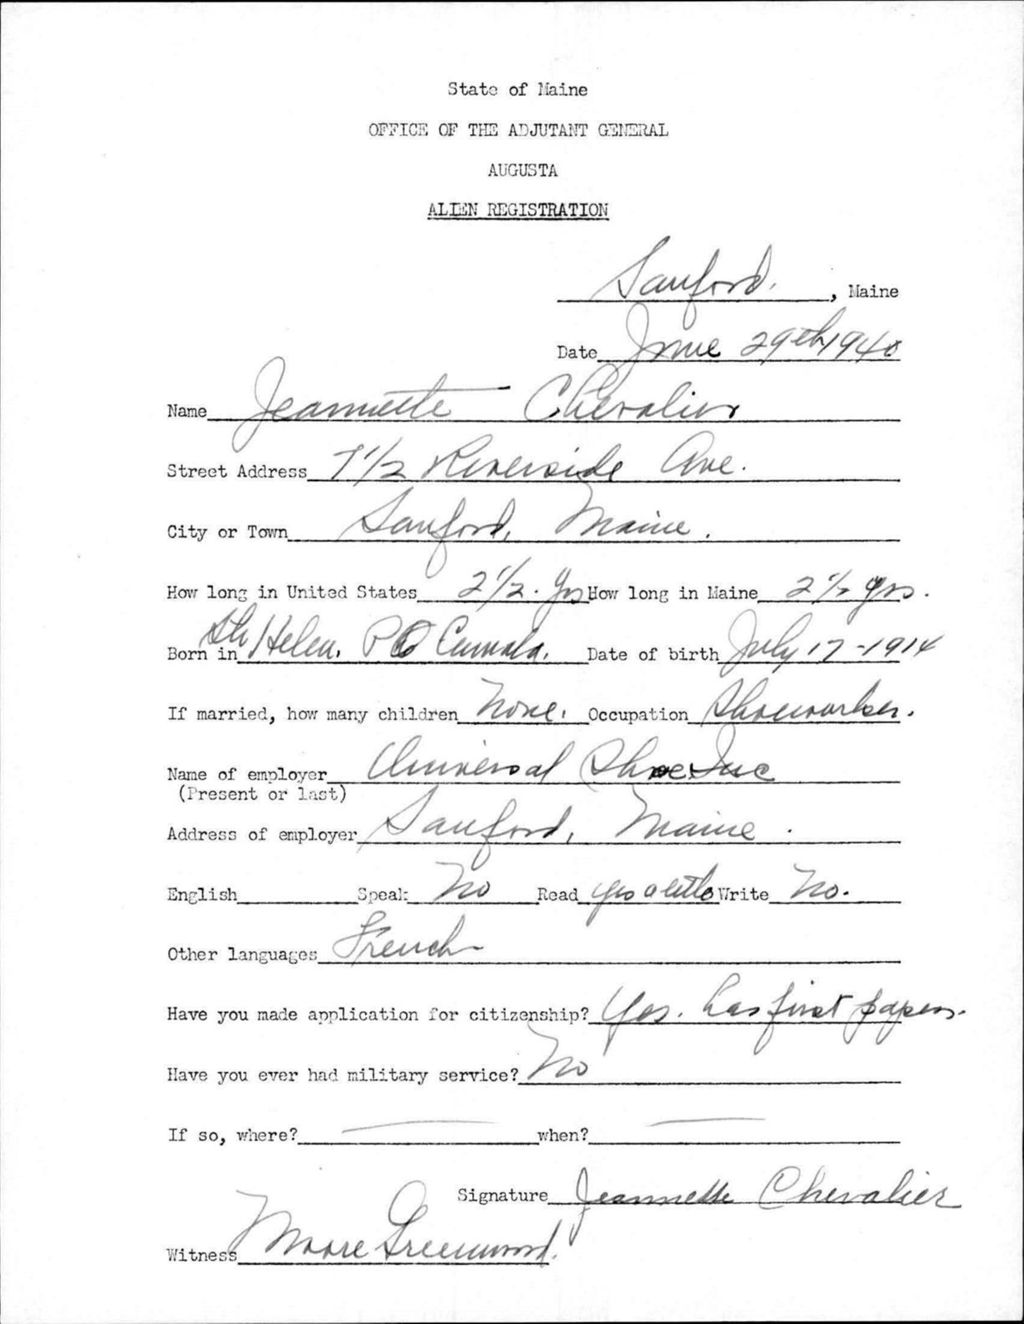 State of Maine
OFFICE OF THE ADJUTANT GENERAL
AUGUSTA
ALIEN REGISTRATION
Sanford. , Maine
Date June 29th 1940
Name Jeannette Chevalier
Street Address 7 1/2 Riverside Ave.
City or Town Sanford, Maine.
How long in United States 2 1/2. Yrs How long in Maine 2 1/2 yrs.
Born in St Helen. P Q Canada. Date of birth July 17 - 1914
If married, how many children None. Occupation Shoeworker.
Name of employer Universal Shoe Inc
(Present or last)
Address of employer Sanford, Maine.
English Speak No Read yes a little Write No.
Other languages French
Have you made application for citizenship? Yes. has first papers.
Have you ever had military service? No
If so, where? — when? —
Signature Jeannette Chevalier
Witness Moore Greenwood.